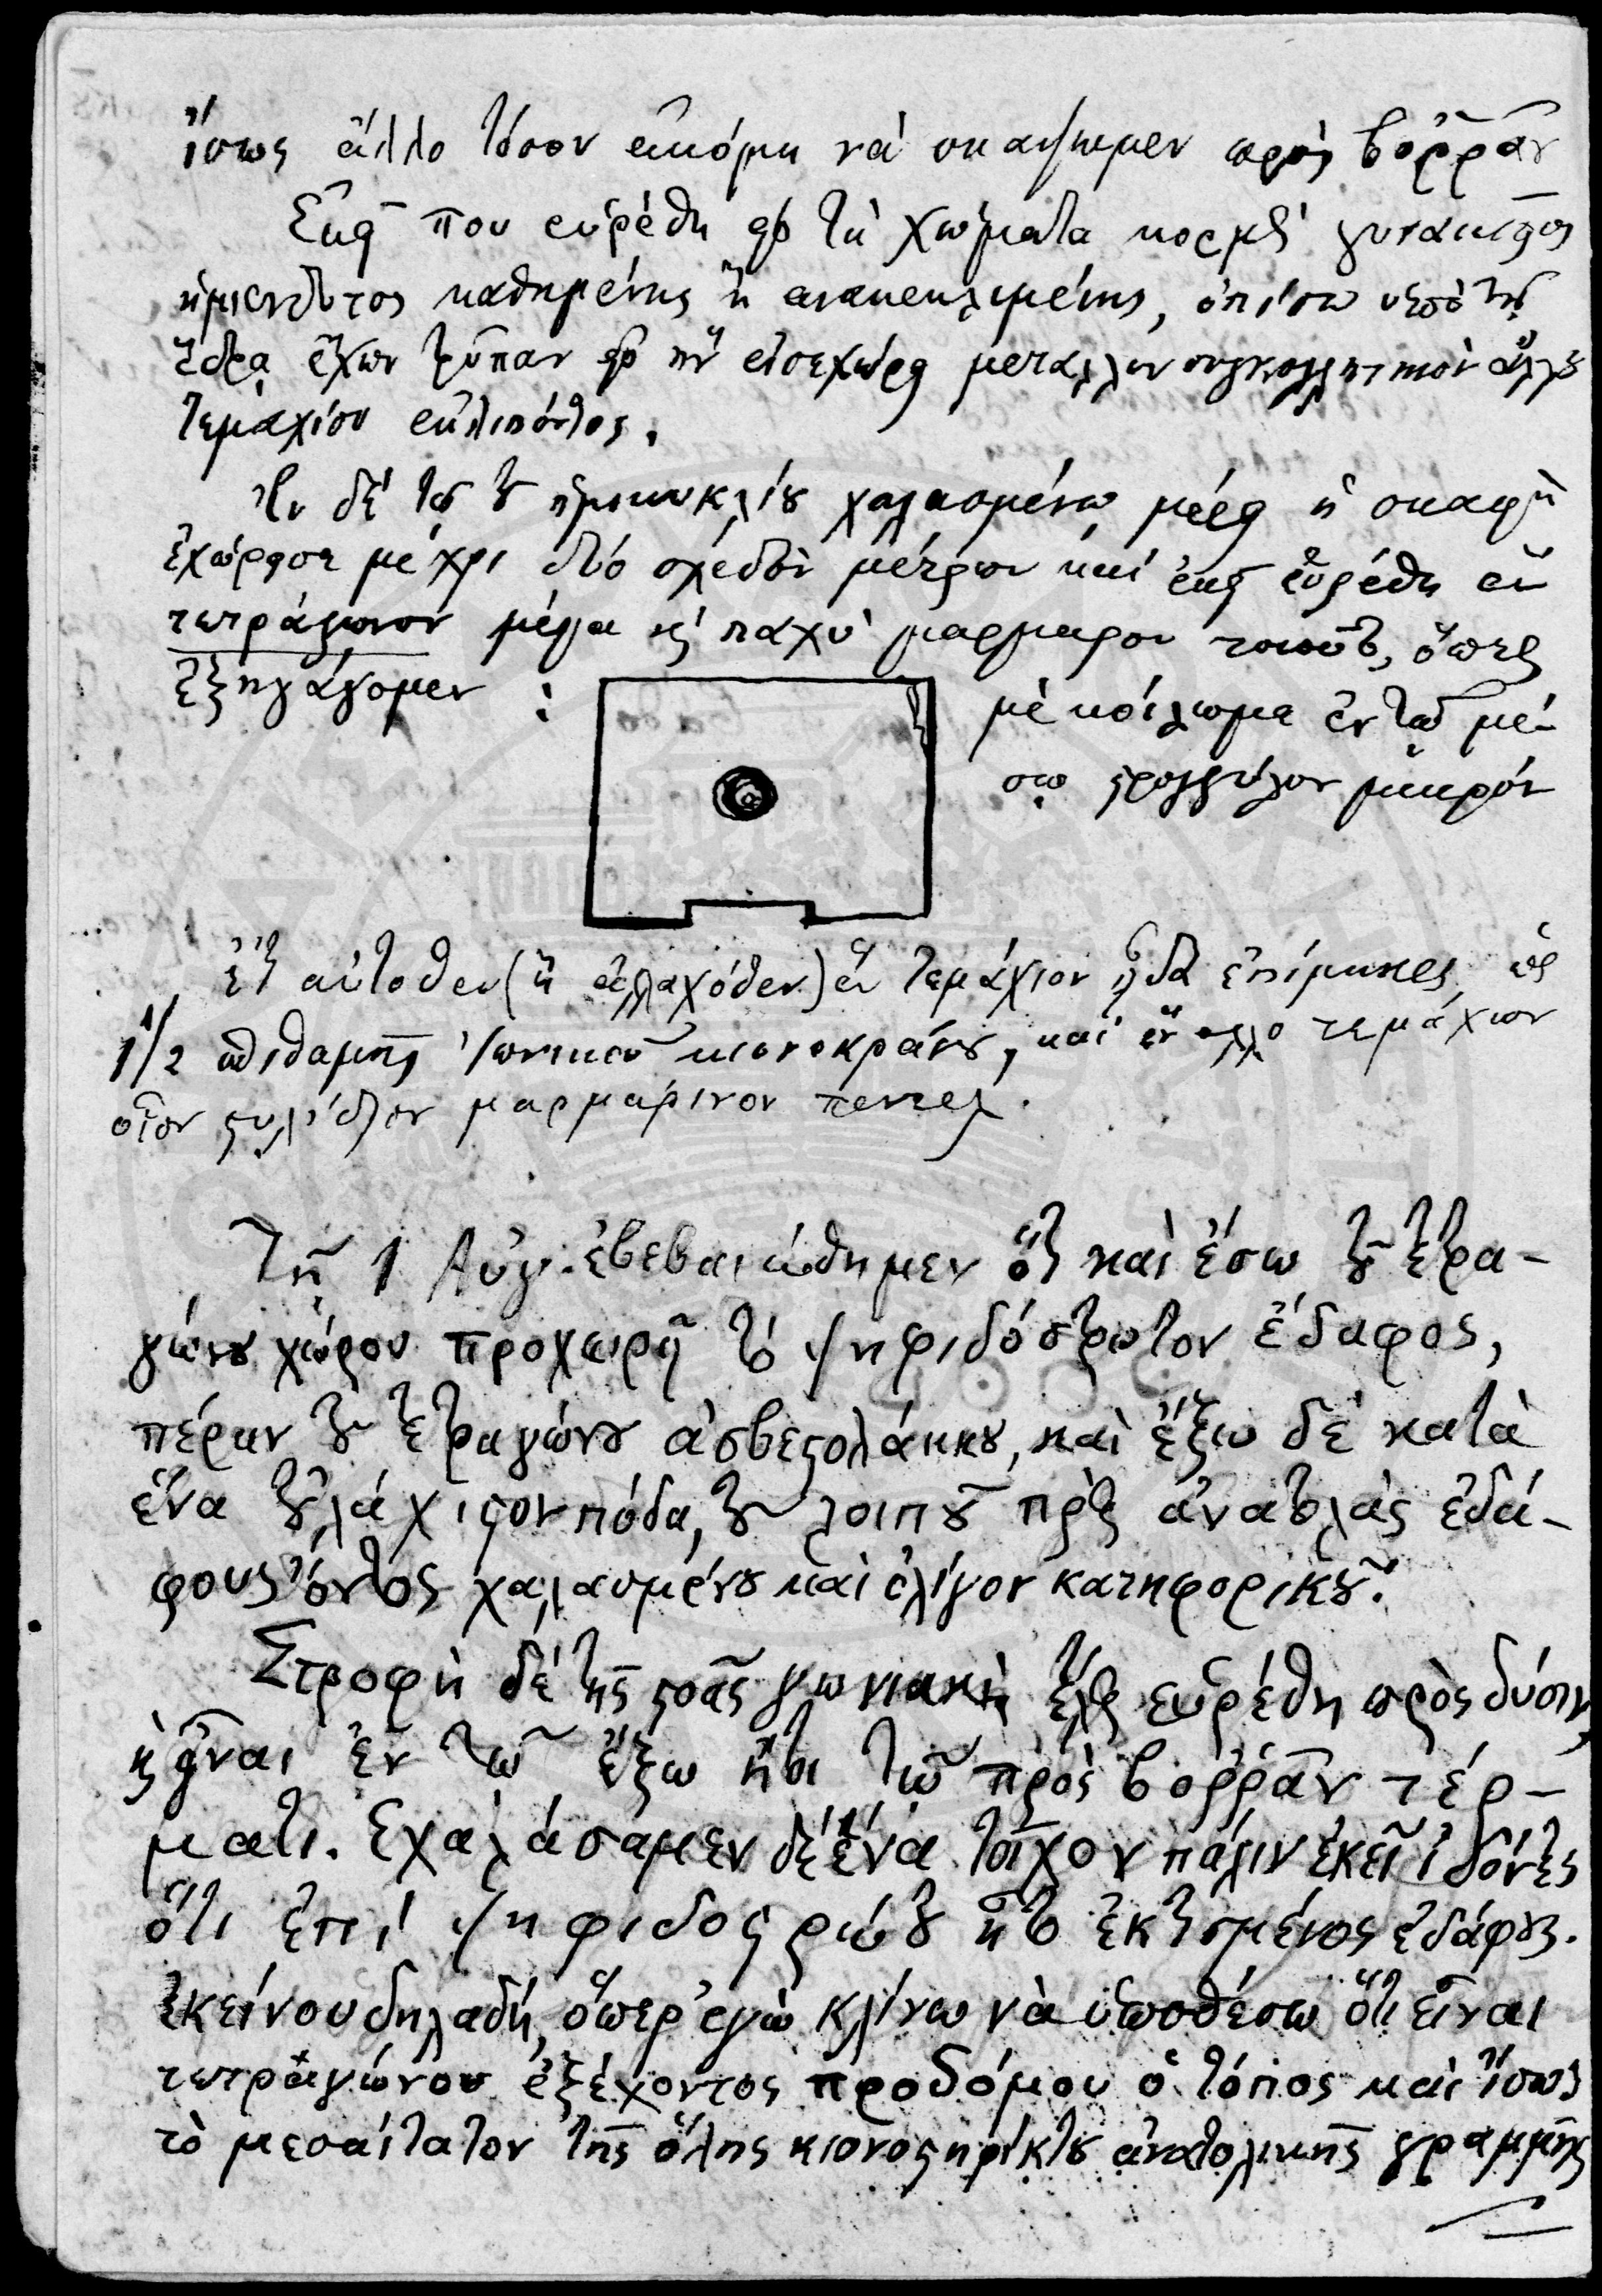 ἴσως ἄλλο τόσον ἀκόμη νὰ σκαψωμεν πρὸς βοῤῥᾶν
Ἐκεῖ που εὑρέθη εἰς τὰ χώματα κορμὶ γυναικεῖον
ἡμιενδυτος καθημένης ἢ ανακεκλιμένης, ὀπίσω ὑπὸ τὴν
ἕδρα ἔχον τρῦπαν εἰς ἣν εἰσεχώρει μεταλλιν συγκολλητικὸν ἄλλου
τεμαχίου ἐκλιπόντος.
Ἐν δὲ τῷ τοῦ ἡμικυκλίου χαλασμένῳ μέρει ἡ σκαφὴ
ἐχώρησε μέχρι δύο σχεδὸν μέτρων καὶ ἐκεῖ εὑρέθη ἓν
τετράγωνον μέγα καὶ παχὺ μαρμαρον τοιοῦτο, ὅπερ
ἐξηγάγομεν :
μὲ κοίλωμα ἐν τῷ μέ-
σῳ στρογγύλον μικρόν
ἔτι αὐτοθεν (ἢ ἀλλαχόθεν) ἓν τεμάχιον ἐπίμηκες, ὡς
1 1/2 σπιθαμῆς ἰωνικοῦ κιονοκράνου, καὶ ἓν άλλο τεμάχιον
οἷον στυλίδιον μαρμάρινον πεντελ.
Τῇ 1 Αὐγ. ἐβεβαιώθημεν ὅτι καὶ ἔσω τοῦ τετρα-
γώνου χώρου προχωρεῖ τὸ ψηφιδόστρωτον ἔδαφος,
πέραν τοῦ τετραγώνου ἀσβεστολάκκου, καὶ ἔξω δὲ κατὰ
ἕνα τοὐλάχιστον πόδα, τοῦ λοιποῦ πρὸς ἀνατολὰς ἐδά-
φους ὄντος χαλασμένου καὶ ὀλίγον κατηφορικοῦ.
Στροφὴ δὲ τῆς στοᾶς γωνιακὴ εὑρέθη πρὸς δύσιν,
καὶ εἶναι ἐν τῷ ἔξω ἤτοι τῷ πρὸς βοῤῥᾶν τέρ-
ματι. Ἐχαλάσαμεν δὲ ἕνα τοῖχον πάλιν ἐκεῖ ἰδόντες
ὅτι ἐπὶ ψηφιδοστρώτου ἦτο ἐκτισμένος ἐδάφους.
Ἐκείνου δηλαδή, ὅπερ ἐγὼ κλίνω νὰ ὑποθέσω ὅτι εἶναι
τετραγώνου ἐξέχοντος προδόμου ὁ τόπος καὶ ἴσως
τὸ μεσαίτατον τῆς ὅλης κιονοστηρίκτου ἀνατολικῆς γραμμῆς